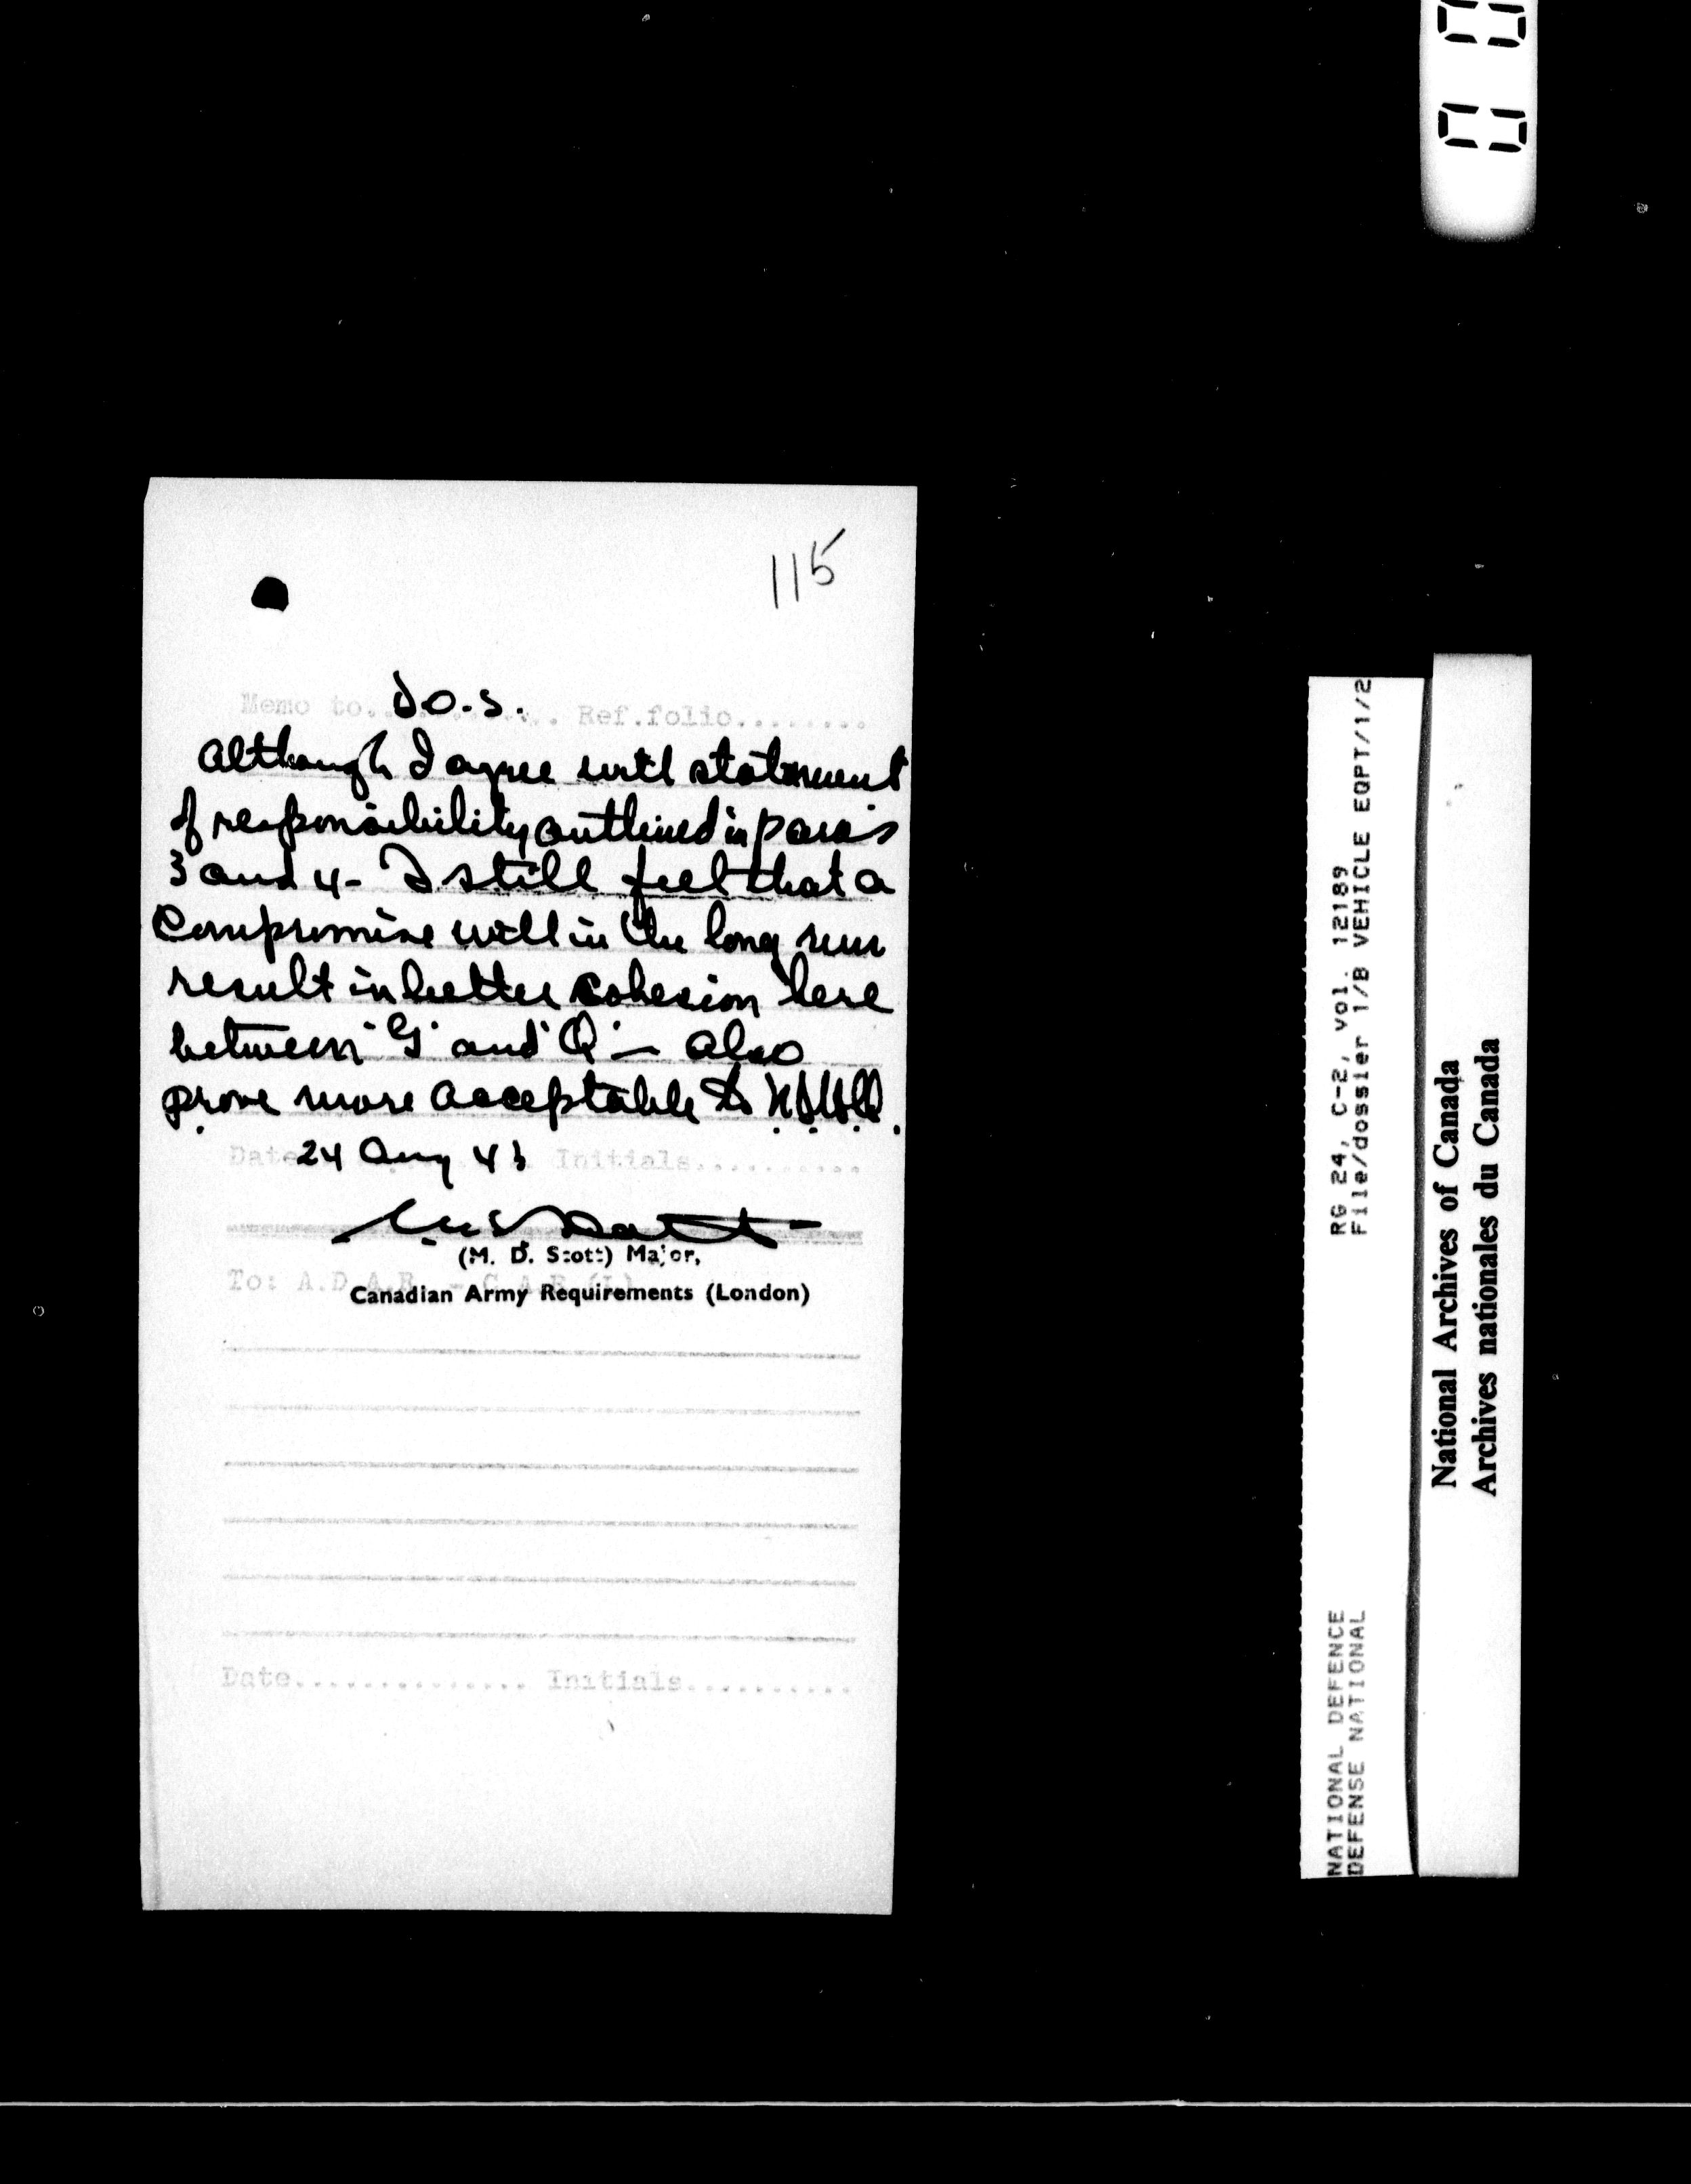 115
Memo to............ Ref.folio........
D.O.S.
Although I agree with statement
of responsibility outlined in para's
3 and 4 - I still feel that a
Compromise will in the long run
result in better cohesion here
between "G" and "Q" — also
prove more acceptable to N.D.H.Q.
Date 24 Aug 43 Initials...........
(M. D. Scott) Major,
To: A.D.A.R. - C.A.R.(L)
Canadian Army Requirements (London)
Date.............. Initials..........
RG 24, C-2, vol. 12189
File/dossier 1/B VEHICLE EQPT/1/2
NATIONAL DEFENCE
DEFENSE NATIONAL
National Archives of Canada
Archives nationales du Canada